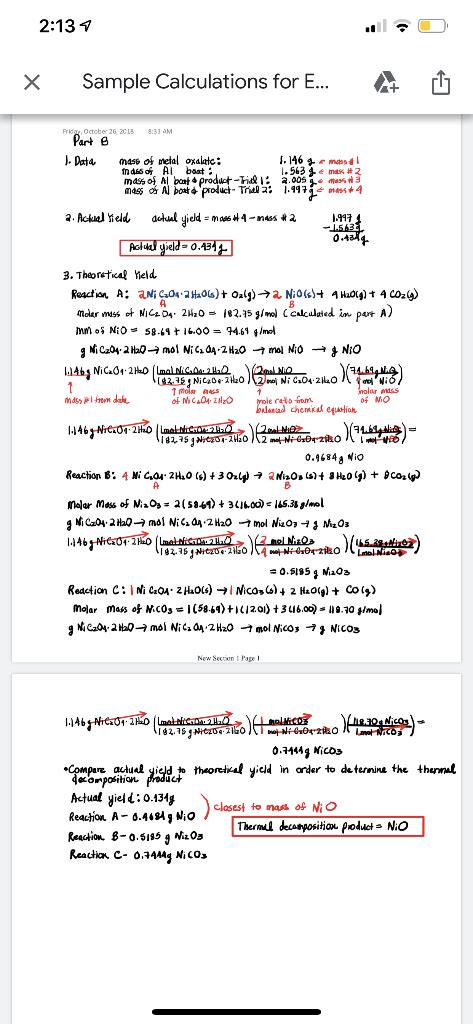 2:13
Sample Calculations for E...
Friday, October 26, 2018 8:33 AM
Part B
1. Data mass of metal oxalate: 1.146 g ← mass #1
mass of Al boat: 1.563 g ← mass #2
mass of Al boat & product - Trial 1: 2.005 g ← mass #3
mass of Al boat & product - Trial 2: 1.997 g ← mass #4
2. Actual Yield actual yield = mass #4 - mass #2 1.997 g
- 1.563 g
0.434 g
Actual yield = 0.434 g
3. Theoretical Yield
Reaction A: 2 NiC2O4·2H2O(s) + O2(g) → 2 NiO(s) + 4 H2O(g) + 4 CO2(g)
A B
Molar mass of NiC2O4·2H2O = 182.75 g/mol (calculated in part A)
mm of NiO = 58.69 + 16.00 = 74.69 g/mol
g NiC2O4·2H2O → mol NiC2O4·2H2O → mol NiO → g NiO
1.146g NiC2O4·2H2O (1 mol NiC2O4·2H2O / 182.75 g NiC2O4·2H2O) (2 mol NiO / 2 mol NiC2O4·2H2O) (74.69g NiO / 1 mol NiO)
↑ mass #1 from data ↑ molar mass of NiC2O4·2H2O ↑ mole ratio from balanced chemical equation ↑ molar mass of NiO
1.146g NiC2O4·2H2O (1 mol NiC2O4·2H2O / 182.75 g NiC2O4·2H2O) (2 mol NiO / 2 mol NiC2O4·2H2O) (74.69g NiO / 1 mol NiO) =
0.4684g NiO
Reaction B: 4 NiC2O4·2H2O (s) + 3 O2(g) → 2 Ni2O3 (s) + 8 H2O (g) + 8 CO2 (g)
A B
Molar Mass of Ni2O3 = 2(58.69) + 3(16.00) = 165.38 g/mol
g NiC2O4·2H2O → mol NiC2O4·2H2O → mol Ni2O3 → g Ni2O3
1.146g NiC2O4·2H2O (1 mol NiC2O4·2H2O / 182.75 g NiC2O4·2H2O) (2 mol Ni2O3 / 4 mol NiC2O4·2H2O) (165.38g Ni2O3 / 1 mol Ni2O3)
= 0.5185 g Ni2O3
Reaction C: 1 NiC2O4·2H2O(s) → 1 NiCO3(s) + 2 H2O(g) + CO(g)
Molar mass of NiCO3 = 1(58.69) + 1(12.01) + 3(16.00) = 118.70 g/mol
g NiC2O4·2H2O → mol NiC2O4·2H2O → mol NiCO3 → g NiCO3
New Section 1 Page 1
1.146g NiC2O4·2H2O (1 mol NiC2O4·2H2O / 182.75 g NiC2O4·2H2O) (1 mol NiCO3 / 1 mol NiC2O4·2H2O) (118.70g NiCO3 / 1 mol NiCO3) =
0.7444g NiCO3
•Compare actual yield to theoretical yield in order to determine the thermal
decomposition product
Actual yield: 0.434g
closest to mass of NiO
Reaction A - 0.4684g NiO
Thermal decomposition product = NiO
Reaction B - 0.5185 g Ni2O3
Reaction C - 0.7444g NiCO3